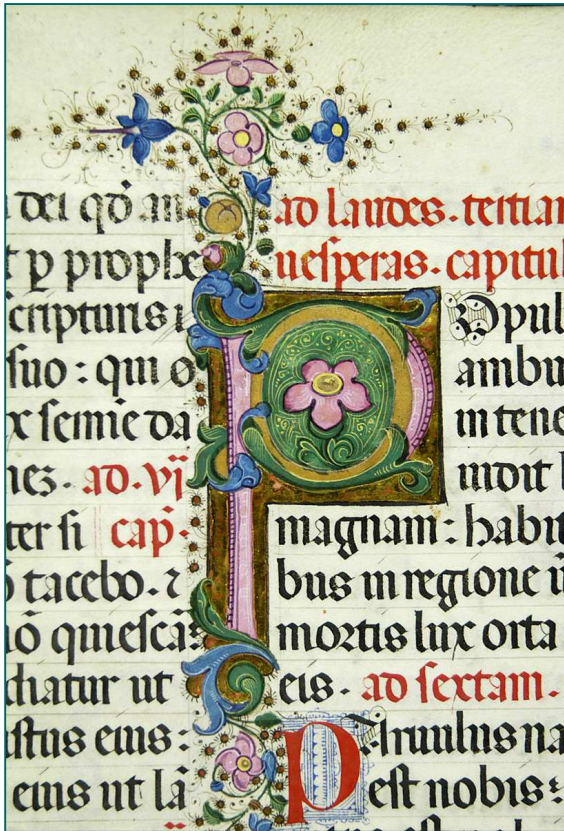 dei qd̄ an
t ꝑ prophe
scripturis i
suo : qui o
x semīe da
nez. ad. vj̄
ter si cap̄.
tacebo. ⁊
nō quiescā
chatur ut
istus eius :
eius ut lā
ad laudes. tertiam
uesperas. capitul
POpul
ambu
in tene
uidit
magnam : habit
bus in regione
mortis lux orta
eis. ad sextam.
PAruulus na
est nobis :